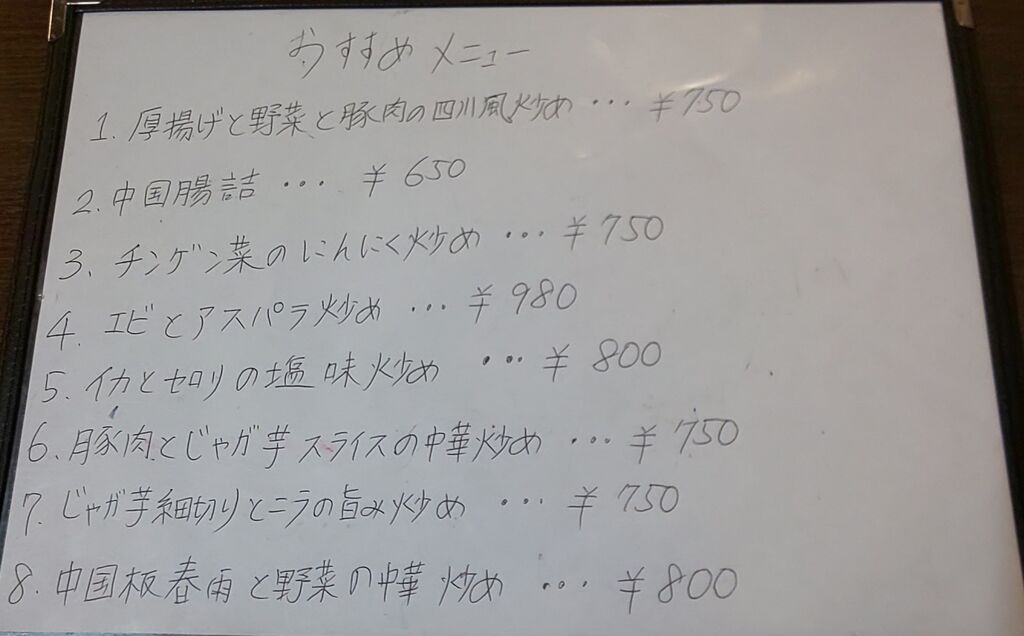 おすすめメニュー
1. 厚揚げと野菜と豚肉の四川風炒め ・・・ ¥750
2. 中国腸詰 ・・・ ¥650
3. チンゲン菜のにんにく炒め ・・・ ¥750
4. エビとアスパラ炒め ・・・ ¥980
5. イカとセロリの塩味炒め ・・・ ¥800
6. 豚肉とじゃガ芋スライスの中華炒め ・・・ ¥750
7. じゃガ芋細切りとニラの旨み炒め ・・・ ¥750
8. 中国板春雨と野菜の中華炒め ・・・ ¥800